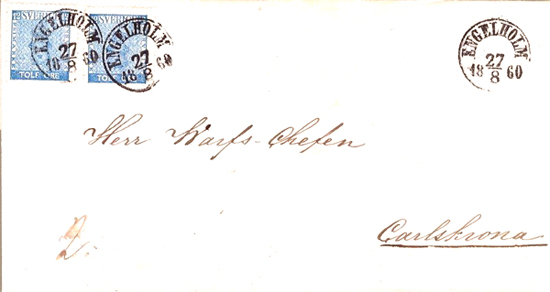 SVERIGE
TOLF ÖRE
ENGELHOLM
27
8
18 60
SVERIGE
TOLF ÖRE
ENGELHOLM
27
8
18 60
ENGELHOLM
27
8
18 60
Herr Warfs-Chefen
2.
Carlskrona